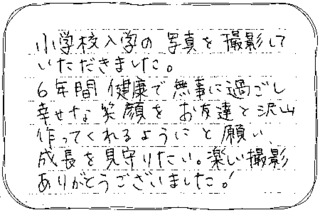 小学校入学の写真を撮影して
いただきました。
6年間健康で無事に過ごし
幸せな笑顔をお友達と沢山
作ってくれるようにと願い
成長を見守りたい。楽しい撮影
ありがとうございました!